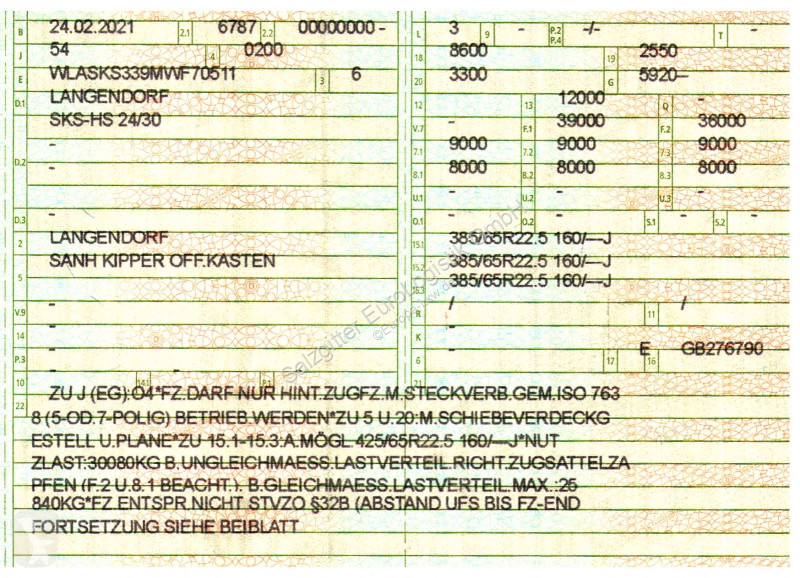 B 24.02.2021 2.1 6787 2.2 00000000 - L 3 9 - P.2 P.4 -/- T -
J 54 4 0200 18 8600 19 2550
E WLASKS339MWF70511 3 6 20 3300 G 5920--
D.1 LANGENDORF 12 - 13 12000 Q -
SKS-HS 24/30 V.7 - F.1 39000 F.2 36000
D.2 - 7.1 9000 7.2 9000 7.3 9000
- 8.1 8000 8.2 8000 8.3 8000
U.1 - U.2 - U.3 -
D.3 - O.1 - O.2 - S.1 - S.2 -
2 LANGENDORF 15.1 385/65R22.5 160/---J
5 SANH KIPPER OFF.KASTEN 15.2 385/65R22.5 160/---J
15.3 385/65R22.5 160/---J
V.9 - R / 11 /
14 - K -
P.3 - 6 - 17 E 16 GB276790
10 - 14.1 - P.1 - 21
22 ZU J (EG):O4*FZ.DARF NUR HINT.ZUGFZ.M.STECKVERB.GEM.ISO 763
8 (5-OD.7-POLIG) BETRIEB.WERDEN*ZU 5 U.20:M.SCHIEBEVERDECKG
ESTELL U.PLANE*ZU 15.1-15.3:A.MÖGL 425/65R22.5 160/---J*NUT
ZLAST:30080KG B.UNGLEICHMAESS.LASTVERTEIL.RICHT.ZUGSATTELZA
PFEN (F.2 U.8.1 BEACHT.). B.GLEICHMAESS.LASTVERTEIL.MAX.:25
840KG*FZ.ENTSPR.NICHT STVZO §32B (ABSTAND UFS BIS FZ-END
FORTSETZUNG SIEHE BEIBLATT
Salzgitter EuroLogistik GmbH